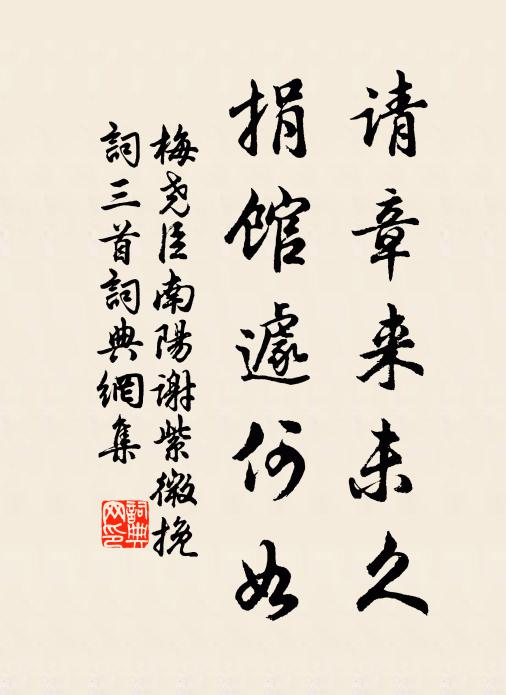 请章来未久
捐馆遽何如
梅尧臣南陽谢紫微挽
詞三首詞典網集
詞典
网印